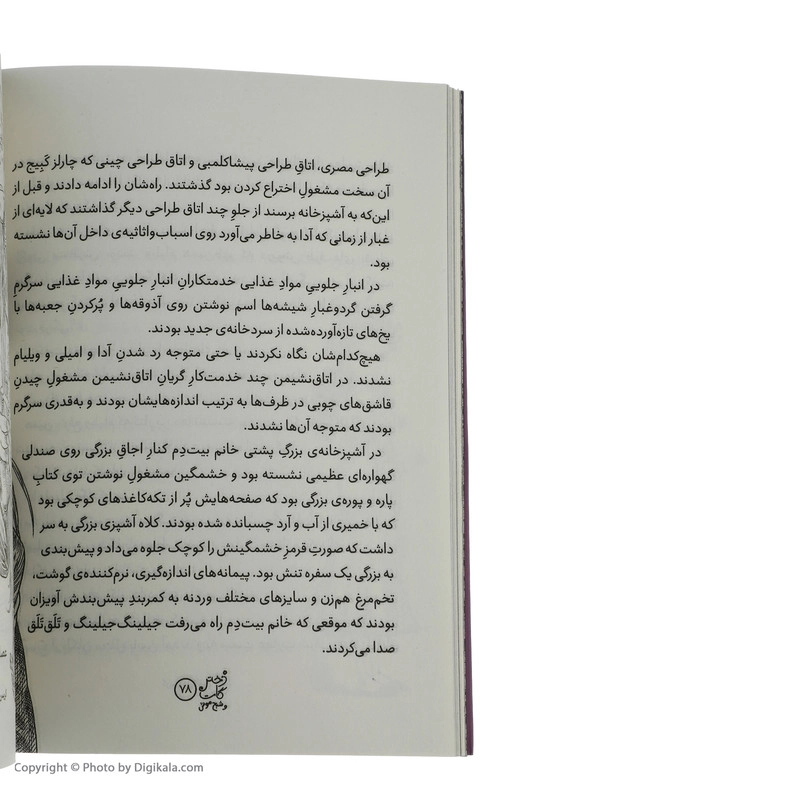 طراحی مصری، اتاق طراحی پیشاکلمبی و اتاق طراحی چینی که چارلز کَبیج در
آن سخت مشغولِ اختراع کردن بود گذشتند. راه‌شان را ادامه دادند و قبل از
این‌که به آشپزخانه برسند از جلوِ چند اتاق طراحی دیگر گذاشتند که لایه‌ای از
غبار از زمانی که آدا به خاطر می‌آورد روی اسباب‌واثاثیه‌ی داخل آن‌ها نشسته
بود.
در انبارِ جلوییِ موادِ غذایی خدمتکارانِ انبارِ جلوییِ موادِ غذایی سرگرمِ
گرفتن گردوغبارِ شیشه‌ها اسم نوشتن روی آذوقه‌ها و پُرکردنِ جعبه‌ها با
یخ‌های تازه‌آورده‌شده از سردخانه‌ی جدید بودند.
هیچ‌کدام‌شان نگاه نکردند یا حتی متوجه رد شدنِ آدا و امیلی و ویلیام
نشدند. در اتاق‌نشیمن چند خدمت‌کارِ گریانِ اتاق‌نشیمن مشغولِ چیدنِ
قاشق‌های چوبی در ظرف‌ها به ترتیب اندازه‌هایشان بودند و به‌قدری سرگرم
بودند که متوجه آن‌ها نشدند.
در آشپزخانه‌ی بزرگِ پشتی خانم بیت‌دِم کنارِ اجاقِ بزرگی روی صندلی
گهواره‌ای عظیمی نشسته بود و خشمگین مشغولِ نوشتن توی کتابِ
پاره و پوره‌ی بزرگی بود که صفحه‌هایش پُر از تکه‌کاغذهای کوچکی بود
که با خمیری از آب و آرد چسبانده شده بودند. کلاه آشپزی بزرگی به سر
داشت که صورتِ قرمزِ خشمگینش را کوچک جلوه می‌داد و پیش‌بندی
به بزرگی یک سفره تنش بود. پیمانه‌های اندازه‌گیری، نرم‌کننده‌ی گوشت،
تخم‌مرغ هم‌زن و سایزهای مختلف وردنه به کمربندِ پیش‌بندش آویزان
بودند که موقعی که خانم بیت‌دِم راه می‌رفت جیلینگ‌جیلینگ و تَلَق‌تَلَق
صدا می‌کردند.
دختر
گات
و شبح موش
۷۸
Copyright © Photo by Digikala.com